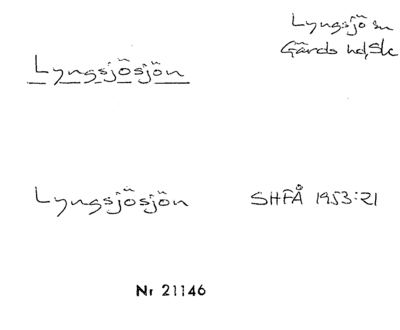 Lyngsjö sn
Gärds hd, Sk
Lyngsjösjön
Lyngsjösjön
SHFÅ 1953:21
Nr 21146